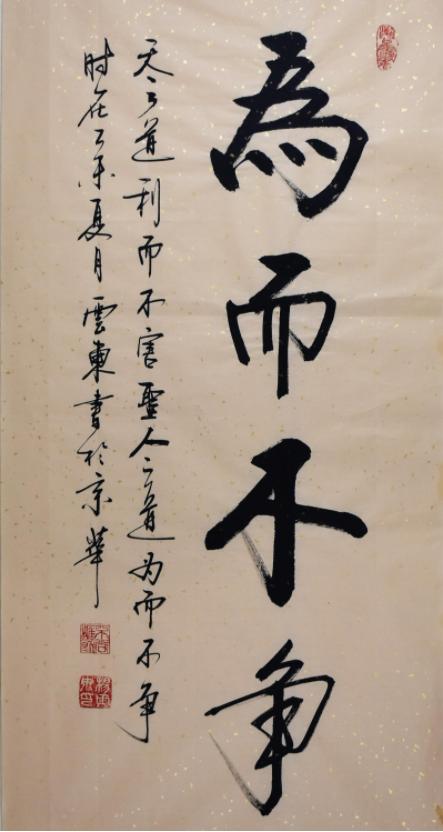 為而不争
天之道利而不害聖人之道为而不争
时在乙未夏月雲東書於京華